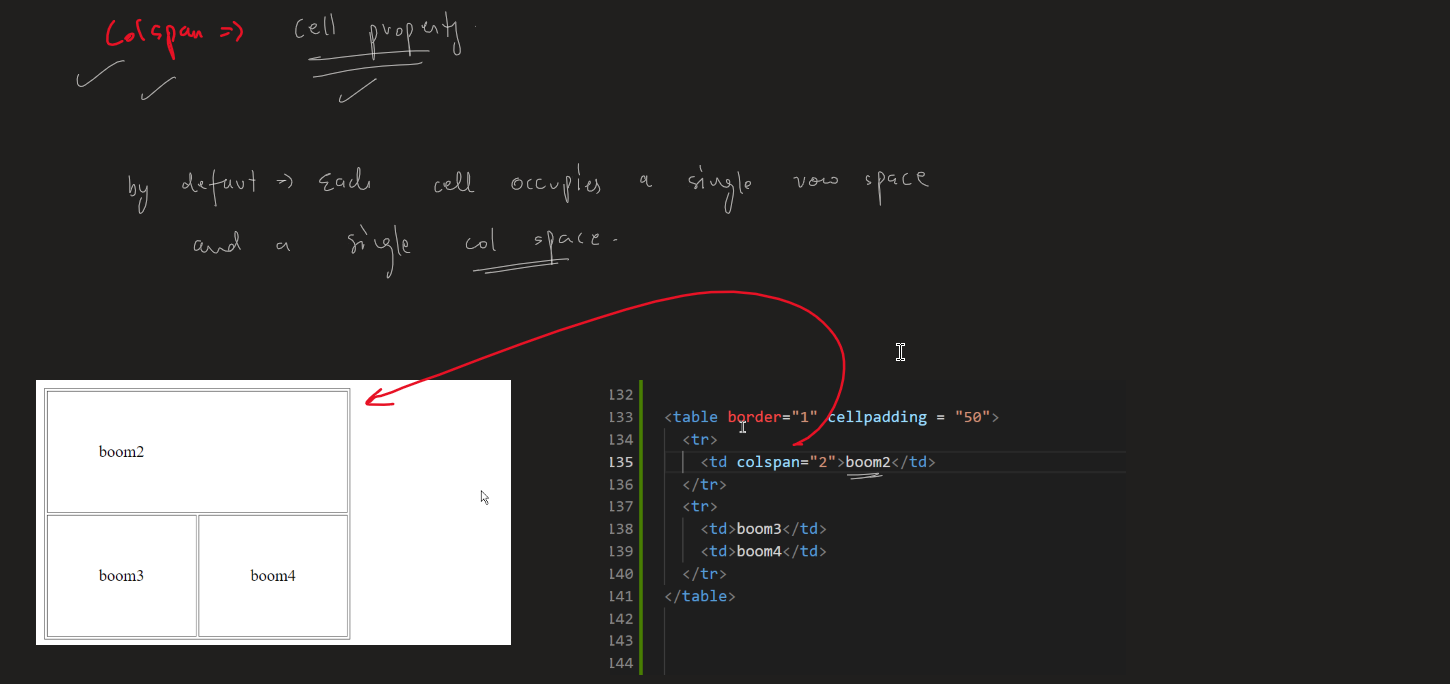 Colspan => cell property.
by defaut => Each cell occupies a single row space
and a single col space.
boom2
boom3 boom4
132
133 <table border="1" cellpadding = "50">
134 <tr>
135 <td colspan="2">boom2</td>
136 </tr>
137 <tr>
138 <td>boom3</td>
139 <td>boom4</td>
140 </tr>
141 </table>
142
143
144